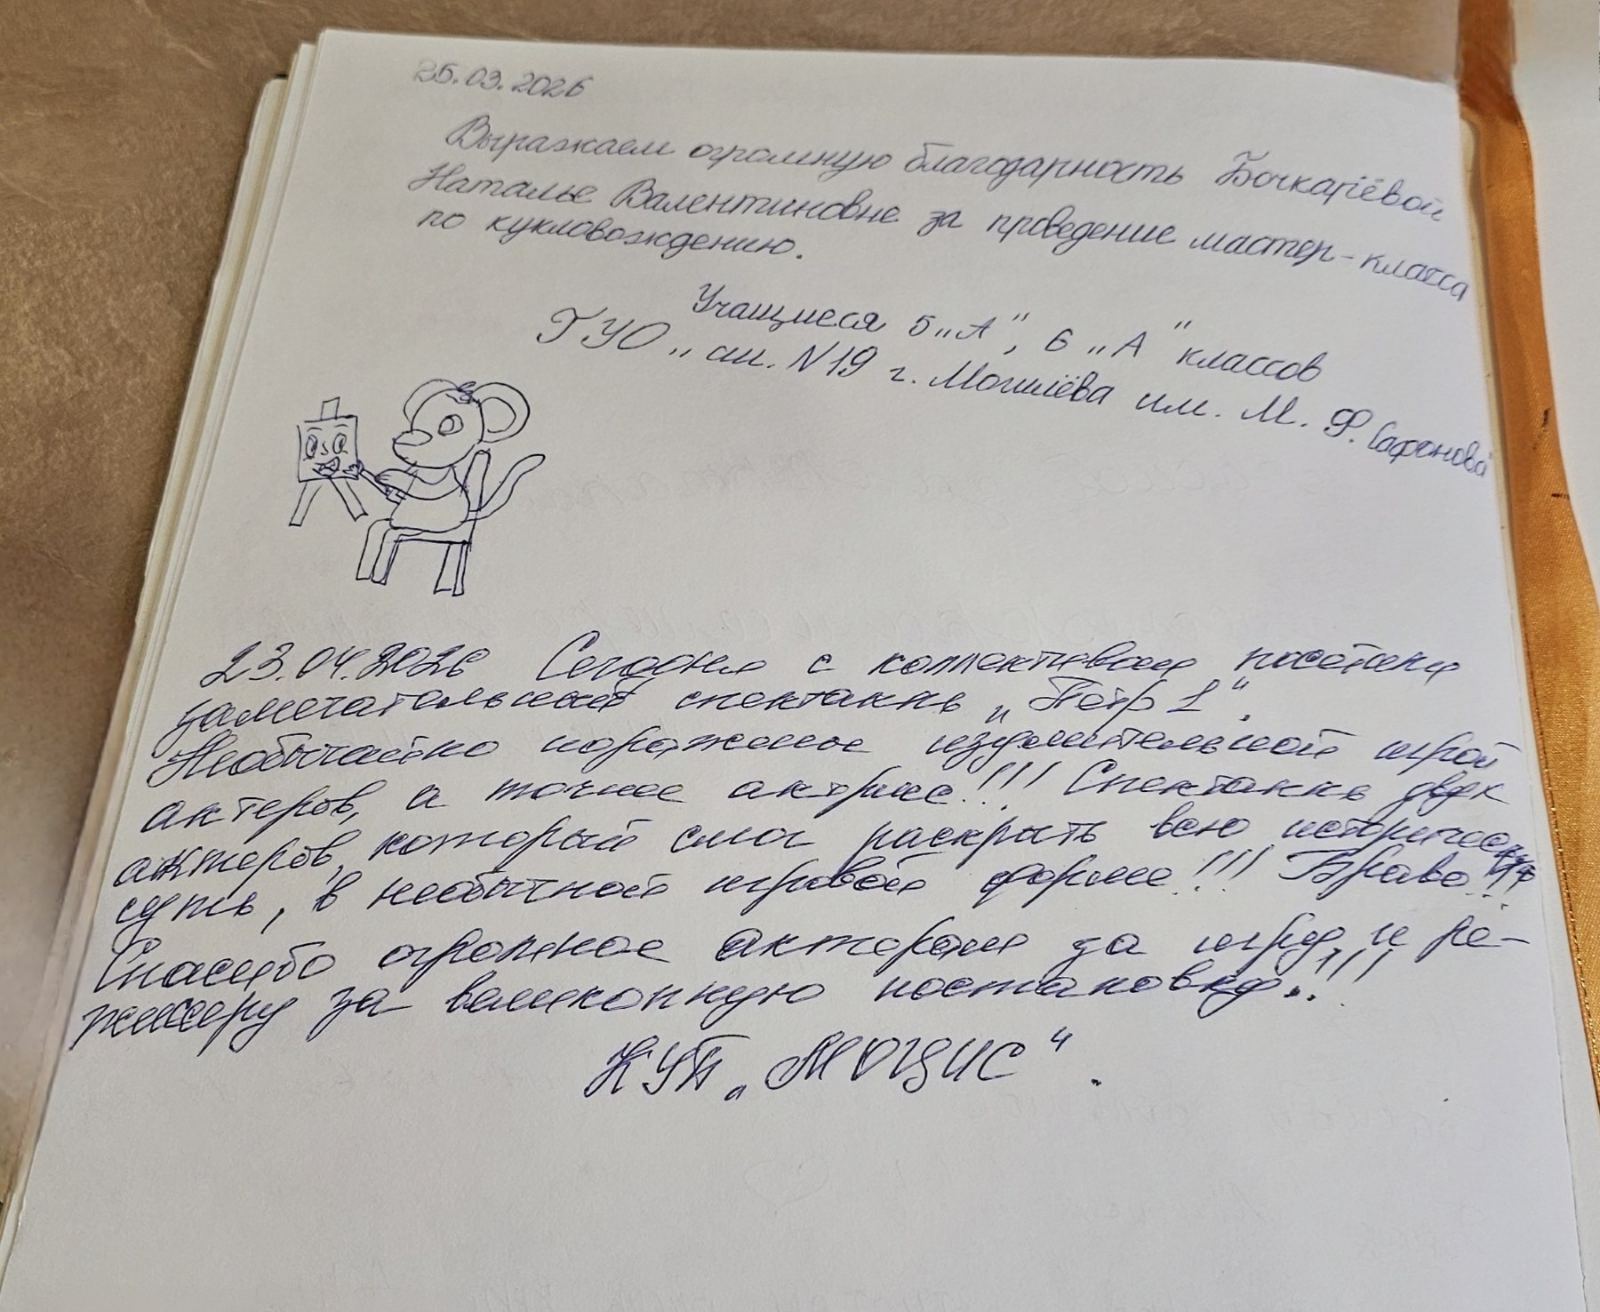 25.03.2026
Выражаем огромную благодарность Бочкарёвой
Наталье Валентиновне за проведение мастер-класса
по кукловождению.
Учащиеся 5 „А", 6 „А" классов
ГУО „сш. N19 г. Могилёва им. М. Ф. Сафонова
23.04.2026 Сегодня с коллективом посетили
замечательный спектакль „Пётр 1".
Необычайно поражены изумительной игрой
актеров, а точнее актрис!!! Спектакль двух
актеров, который смог раскрыть всю историческую
суть, в необычной игровой форме!!! Браво!!!
Спасибо огромное актерам за игру, и ре-
жиссеру за великолепную постановку..!!!
КУП „МОЦИС".